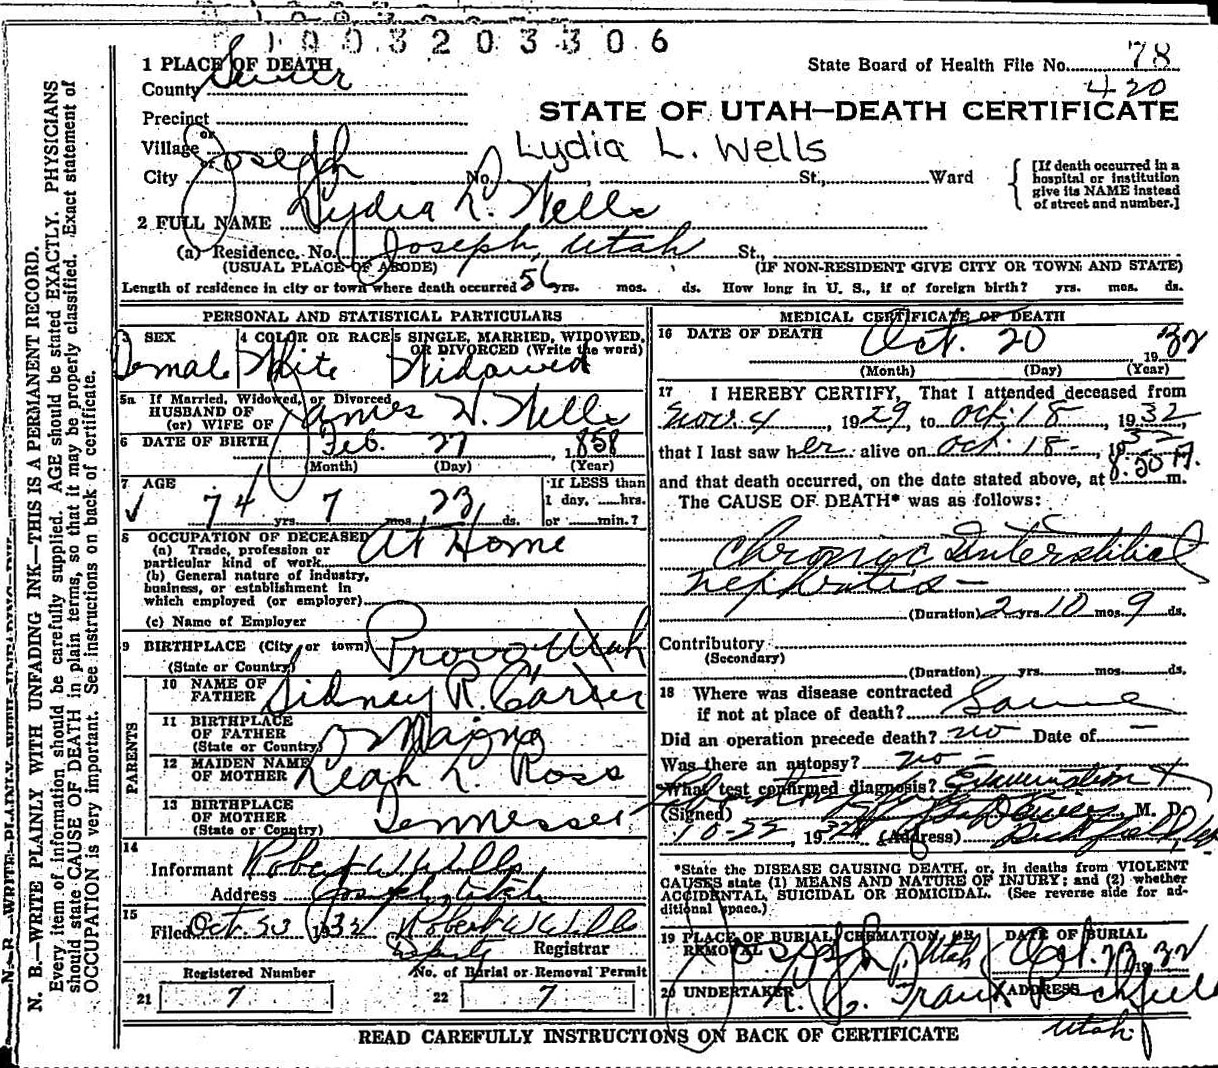 1003203306
1 PLACE OF DEATH
County Sevier
State Board of Health File No. 78
420
STATE OF UTAH—DEATH CERTIFICATE
Precinct
or
Village
or
City Joseph No. St., Ward
Lydia L. Wells
[If death occurred in a
hospital or institution
give its NAME instead
of street and number.]
2 FULL NAME Lydia L. Wells
(a) Residence. No. Joseph, Utah St.,
(USUAL PLACE OF ABODE) (IF NON-RESIDENT GIVE CITY OR TOWN AND STATE)
Length of residence in city or town where death occurred 56 yrs. mos. ds. How long in U. S., if of foreign birth? yrs. mos. ds.
PERSONAL AND STATISTICAL PARTICULARS
3 SEX 4 COLOR OR RACE 5 SINGLE, MARRIED, WIDOWED,
OR DIVORCED (Write the word)
Female White Widowed
5a If Married, Widowed, or Divorced
HUSBAND OF
(or) WIFE OF James W. Wells
6 DATE OF BIRTH Feb. 27, 1858
(Month) (Day) (Year)
7 AGE If LESS than
1 day, hrs.
74 yrs. 7 mos. 23 ds. or min.?
8 OCCUPATION OF DECEASED
(a) Trade, profession or
particular kind of work At Home
(b) General nature of industry,
business, or establishment in
which employed (or employer)
(c) Name of Employer
9 BIRTHPLACE (City or town) Provo Utah
(State or Country)
PARENTS
10 NAME OF
FATHER Sidney R. Carter
11 BIRTHPLACE
OF FATHER
(State or Country) Maine
12 MAIDEN NAME
OF MOTHER Leah L. Ross
13 BIRTHPLACE
OF MOTHER
(State or Country) Tennessee
14
Informant Robert W Wells
Address Joseph, Utah
15
Filed Oct. 23 1932 Robert W Wells
Deputy Registrar
Registered Number No. of Burial or Removal Permit
21 7 22 7
MEDICAL CERTIFICATE OF DEATH
16 DATE OF DEATH Oct. 20 1932
(Month) (Day) (Year)
17 I HEREBY CERTIFY, That I attended deceased from
Nov. 4, 1929, to Oct. 18, 1932,
that I last saw her alive on Oct. 18-, 1932
and that death occurred, on the date stated above, at 8.50 A. m.
The CAUSE OF DEATH* was as follows:
Chronic Interstitial
nephritis—
(Duration) 2 yrs. 10 mos. 9 ds.
Contributory
(Secondary)
(Duration) yrs. mos. ds.
18 Where was disease contracted
if not at place of death? Same
Did an operation precede death? no Date of —
Was there an autopsy? no —
What test confirmed diagnosis? Examination +
Laboratory
(Signed) M. D.
10-22, 1932 (Address) Richfield, Utah
*State the DISEASE CAUSING DEATH, or, in deaths from VIOLENT
CAUSES state (1) MEANS AND NATURE OF INJURY; and (2) whether
ACCIDENTAL, SUICIDAL OR HOMICIDAL. (See reverse side for ad-
ditional space.)
19 PLACE OF BURIAL, CREMATION, OR
REMOVAL Joseph, Utah
DATE OF BURIAL
Oct. 23 1932
20 UNDERTAKER ADDRESS
Richfield
Utah
READ CAREFULLY INSTRUCTIONS ON BACK OF CERTIFICATE
N. B.—WRITE PLAINLY WITH UNFADING INK—THIS IS A PERMANENT RECORD.
Every item of information should be carefully supplied. AGE should be stated EXACTLY. PHYSICIANS
should state CAUSE OF DEATH in plain terms, so that it may be properly classified. Exact statement of
OCCUPATION is very important. See instructions on back of certificate.